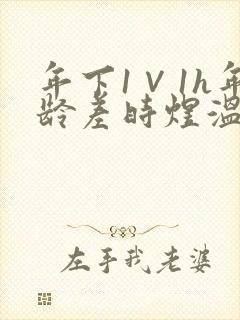 年下1V1h年
龄差时煜温
左手我老婆